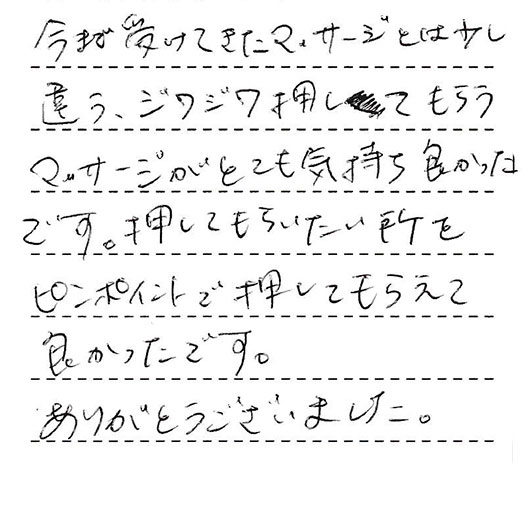 今まで受けてきたマッサージとは少し
違う、ジワジワ押してもらう
マッサージがとても気持ち良かった
です。押してもらいたい所を
ピンポイントで押してもらえて
良かったです。
ありがとうございました。